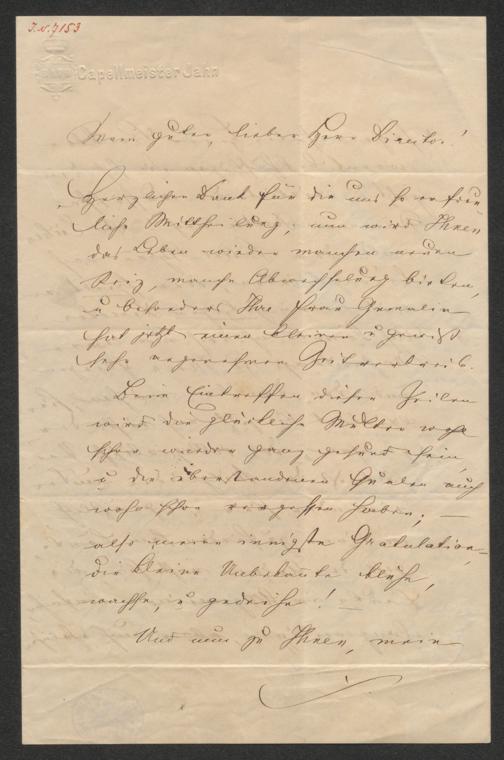 I.N. 7153
Capellmeister Jahn
Mein guter, lieber Herr Director!
Herzlichen Dank für die uns so erfreu
liche Mittheilung, nun wird Ihnen
das Leben wieder manchen neuen
Reiz, manche Abwechselung bieten,
u besonders Ihre Frau Gemalin
hat jetzt einen kleinen u gewiß
sehr angenehmen Zeitvertreib.
Beim Eintreffen dieser Zeilen
wird die glückliche Mutter wohl
schon wieder ganz gesund sein,
u die überstandenen Qualen auch
wohl schon vergessen haben; —
also meine innigste Gratulation,
die kleine Unbekannte blühe,
wachse, u gedeihe! —
Und nun zu Ihnen, mein